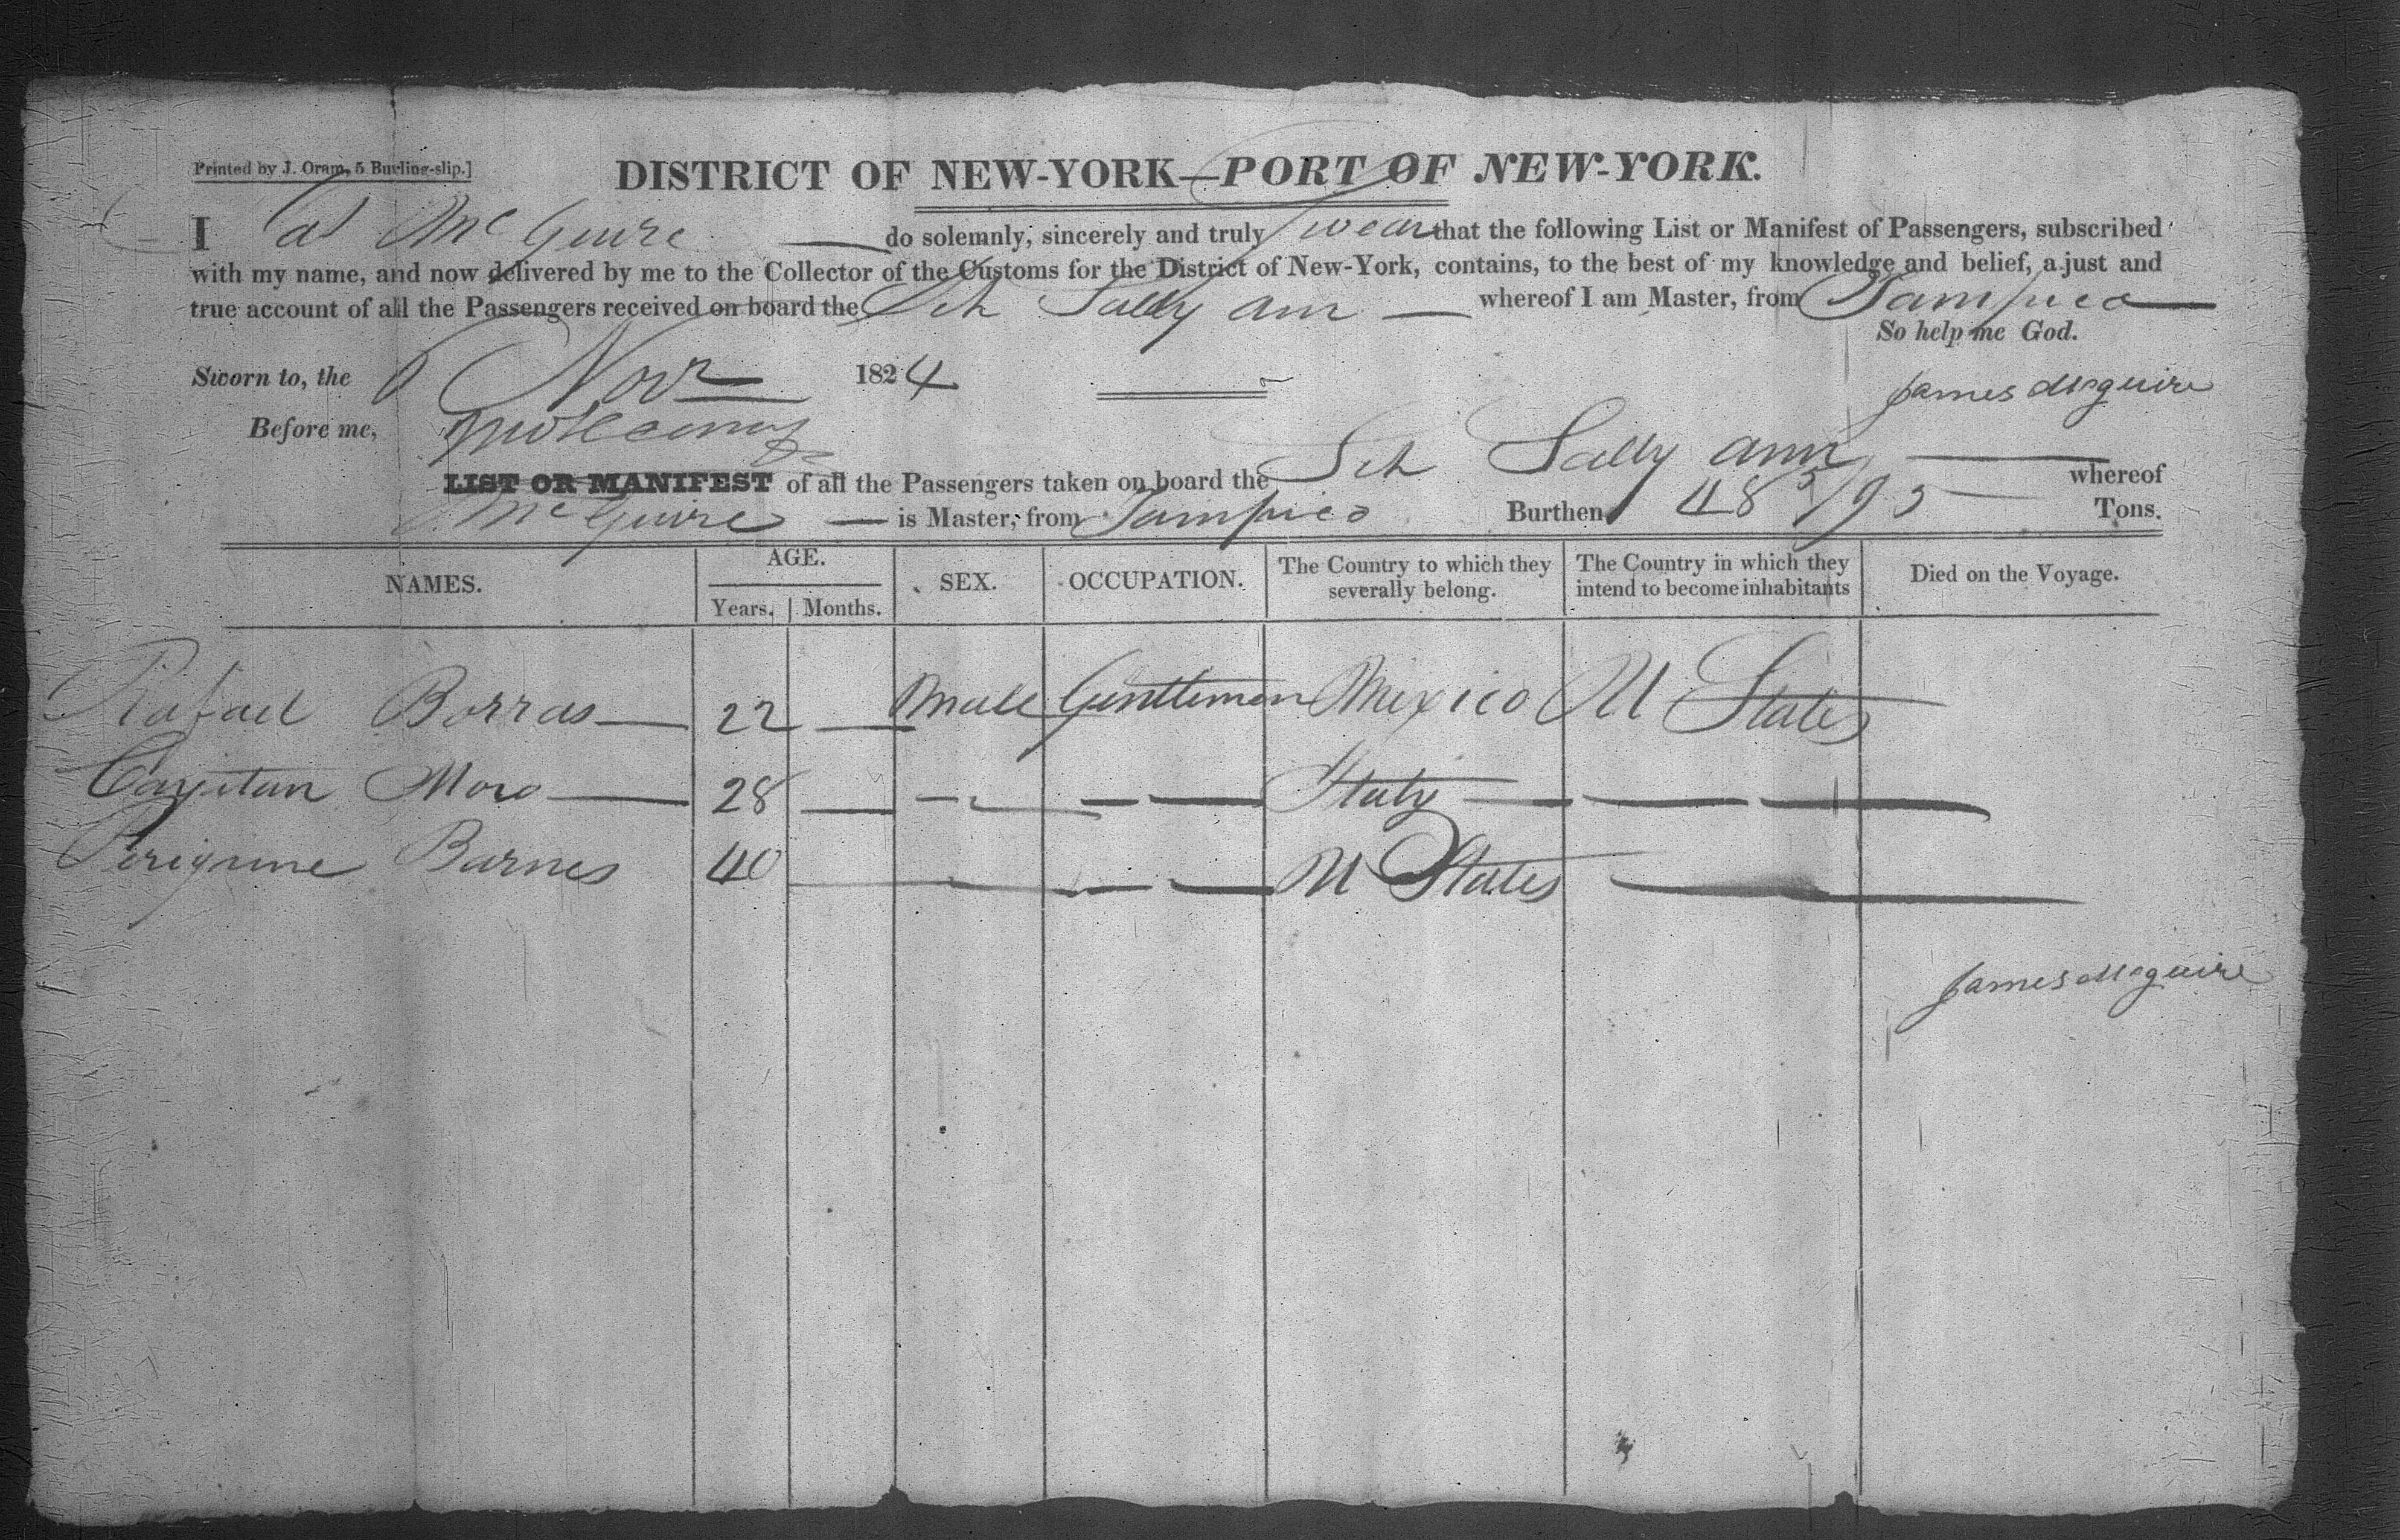 Printed by J. Oram, 5 Burling-slip.]
DISTRICT OF NEW-YORK—PORT OF NEW-YORK.
I McGuire do solemnly, sincerely and truly swear that the following List or Manifest of Passengers, subscribed
with my name, and now delivered by me to the Collector of the Customs for the District of New-York, contains, to the best of my knowledge and belief, a just and
true account of all the Passengers received on board the Sch Sally Ann — whereof I am Master, from Tampico
So help me God.
Sworn to, the Novr 1824
James Mcguire
Before me,
LIST OR MANIFEST of all the Passengers taken on board the Sch Sally Ann whereof
McGuire — is Master, from Tampico Burthen 48 5/95 Tons.
NAMES. AGE. SEX. OCCUPATION. The Country to which they severally belong. The Country in which they intend to become inhabitants Died on the Voyage.
Years. Months.
Rafael Borras — 22 — Male Gentleman Mexico U States
Cayetan Moro — 28 — — — Italy — —
Perigrine Barnes 40 — — — U States —
James Mcguire